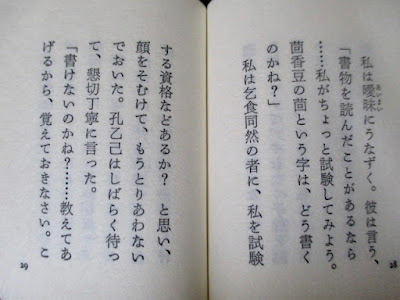 私は曖昧にうなずく。彼は言う、
「書物を読んだことがあるなら
……私がちょっと試験してみよう。
茴香豆の茴という字は、どう書く
のかね?」
私は乞食同然の者に、私を試験
28
する資格などあるか? と思い、
顔をそむけて、もうとりあわない
でおいた。孔乙己はしばらく待っ
て、懇切丁寧に言った。
「書けないのかね?……教えてあ
げるから、覚えておきなさい。こ
29